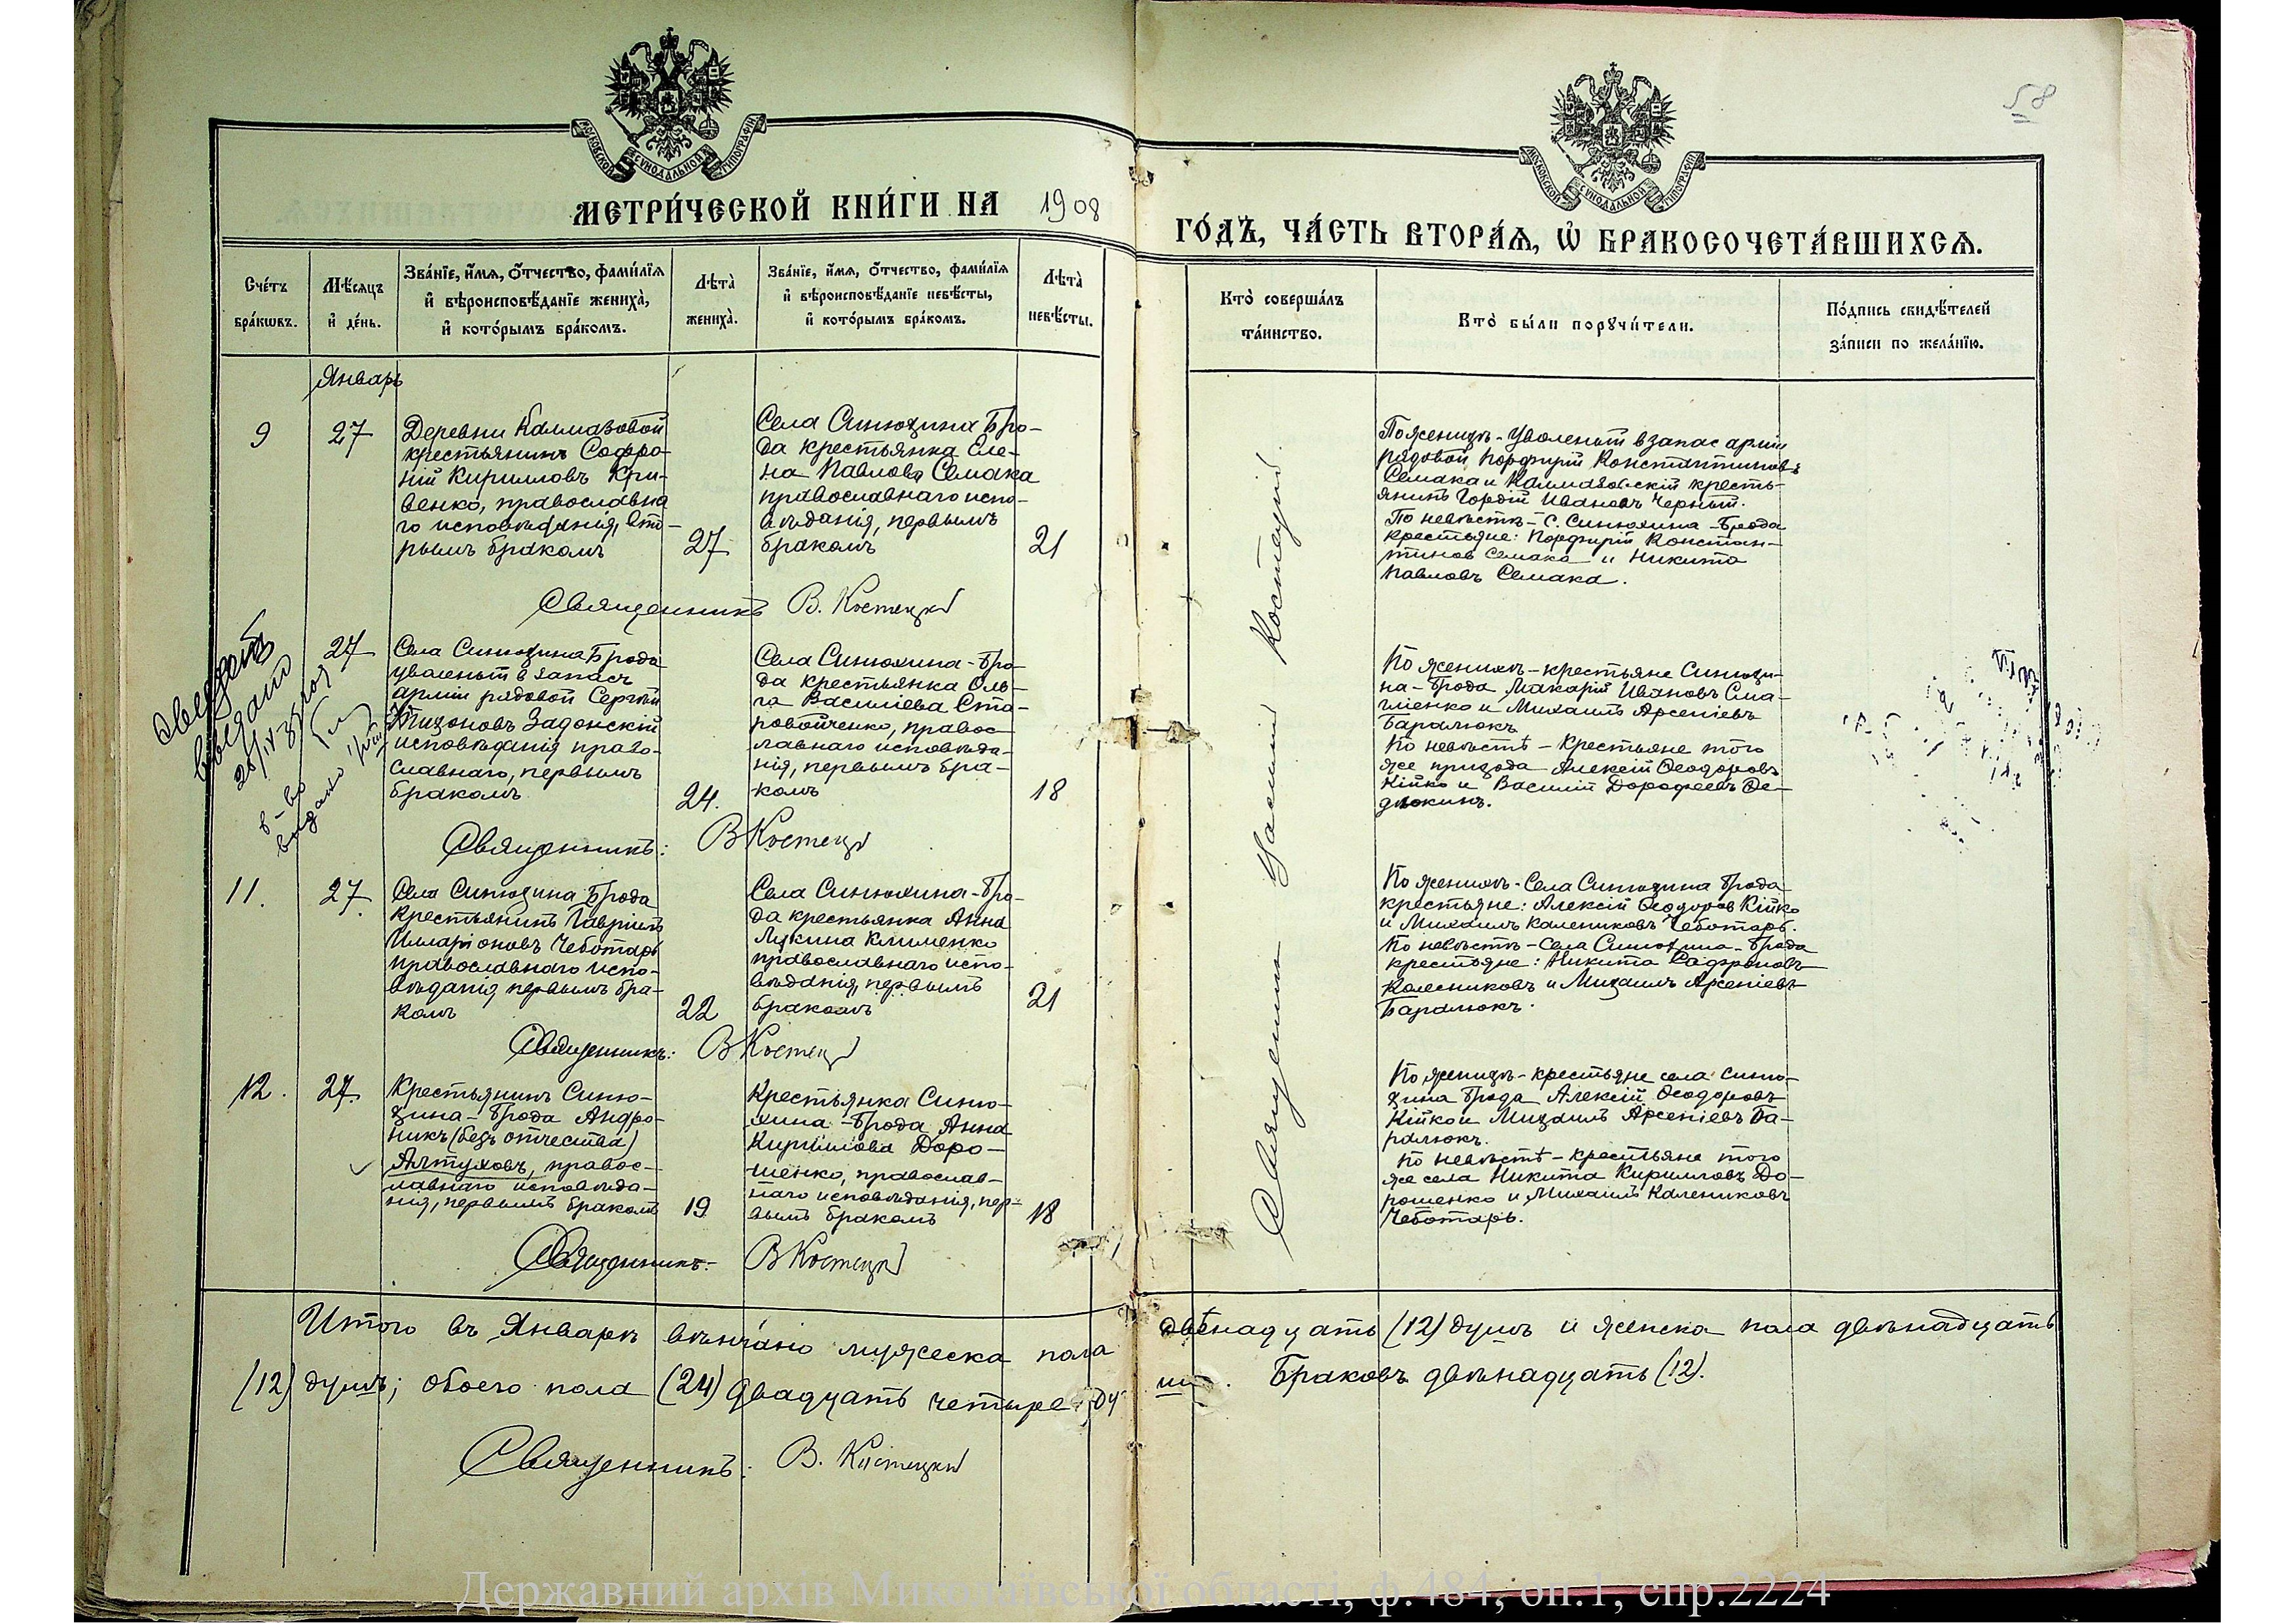 58
МОСКОВСКОЙ СѴНОДАЛЬНОЙ ТИПОГРАФІИ
МОСКОВСКОЙ СѴНОДАЛЬНОЙ ТИПОГРАФІИ
МЕТРИ́ЧЕСКОЙ КНИ́ГИ НА 1908
ГО́ДЪ, ЧА́СТЬ ВТОРА́Ѧ, Ѡ҆ БРАКОСОЧЕТА́ВШИХСѦ.
Сче́тъ
бра́кѡвъ.
Мѣ́сяцъ
и҆ де́нь.
Зва́нїе, и҆́мя, о҆́тчество, фами́лїя
и҆ вѣроисповѣ́данїе жениха̀,
и҆ кото́рымъ бра́комъ.
Лѣта̀
жениха̀.
Зва́нїе, и҆́мя, о҆́тчество, фами́лїя
и҆ вѣроисповѣ́данїе невѣ́сты,
и҆ кото́рымъ бра́комъ.
Лѣта̀
невѣ́сты.
Кто̀ соверша́лъ
та́инство.
Кто̀ бы́ли порꙋчи́тели.
По́дпись свидѣ́телей
за́писи по жела́нїю.
Январь
9
27
Деревни Калмазовой
крестьянинъ Софро-
ній Кирилловъ Кри-
венко, православна
го исповѣданія, вто-
рымъ бракомъ
27
Села Синюхина Бро-
да крестьянка Еле-
на Павлова Семака
православнаго испо-
вѣданія, первымъ
бракомъ
21
По женихѣ - уволеный в запас арміи
рядовой Порфирій Константиновъ
Семака и Калмазовскій кресть-
янинъ Гордій Ивановъ Черный.
По невѣстѣ - С. Синюхина - Брода
крестьяне: Порфирій Констан-
тинов Семака и Никита
Павловъ Семака.
Священникъ В. Костецкі
27
Села Синюхина Брода
уволеный в запасъ
арміи рядовой Сергій
Тихоновъ Задонскій
исповѣданія право-
славнаго, первымъ
бракомъ
24.
Села Синюхина - Бро-
да крестьянка Оль-
га Василіева Ста-
ровойченко, правос-
лавнаго исповѣда-
нія, первымъ бра-
комъ
18
По женихѣ - крестьяне Синюхи-
на - Брода Макарій Ивановъ Сма-
гліенко и Михаилъ Арсеніевъ
Баралюкъ
По невѣстѣ - Крестьяне того
же прихода Алексій Ѳеодоровъ
Кійко и Василій Дорофеевъ Ѳе-
дюкинъ.
Священникъ: В Костецкі
11.
27.
Села Синюхина Брода
Крестьянинъ Гавріилъ
Илларіоновъ Чеботарь
православнаго испо-
вѣданія первымъ бра-
комъ
22
Села Синюхина - Бро-
да крестьянка Анна
Лукина Клименко
православнаго испо-
вѣданія, первымъ
бракомъ
21
По женихѣ - Села Синюхина Брода
крестьяне: Алексій Ѳеодоров Кійко
и Михаилъ Калениковъ Чеботарь.
По невѣстѣ - Села Синюхина - Брода
крестьяне: Никита Софроновъ
Колесниковъ и Михаилъ Арсеніевъ
Баралюкъ.
Священникъ: В Костецкі
12.
27.
Крестьянинъ Синю-
хина - Брода Андро-
никъ (безъ отчества)
Алтуховъ, правос-
лавнаго исповѣда-
нія, первымъ бракомъ
19
Крестьянка Синю-
хина - Брода Анна
Кириллова Доро-
шенко, православ-
наго исповѣданія, пер-
вымъ бракомъ
18
По женихѣ - крестьяне села Синю-
хина Брода Алексій Ѳеодоровъ
Кійко и Михаилъ Арсеніевъ Ба-
ралюкъ.
По невѣстѣ - крестьяне того
же села Никита Кирилловъ До-
рошенко и Михаилъ Калениковъ
Чеботарь.
Священникъ: В Костецкі
Священникъ Костецкій
Итого въ Январѣ вѣнчано мужеска пола двѣнадцать (12) душъ и женска пола двѣнадцать
(12) душъ; обоего пола (24) двадцать четыре ду Браковъ двѣнадцать (12).
Священникъ: В. Костецкі
Державний архів Миколаївської області, ф.484, оп.1, спр.2224